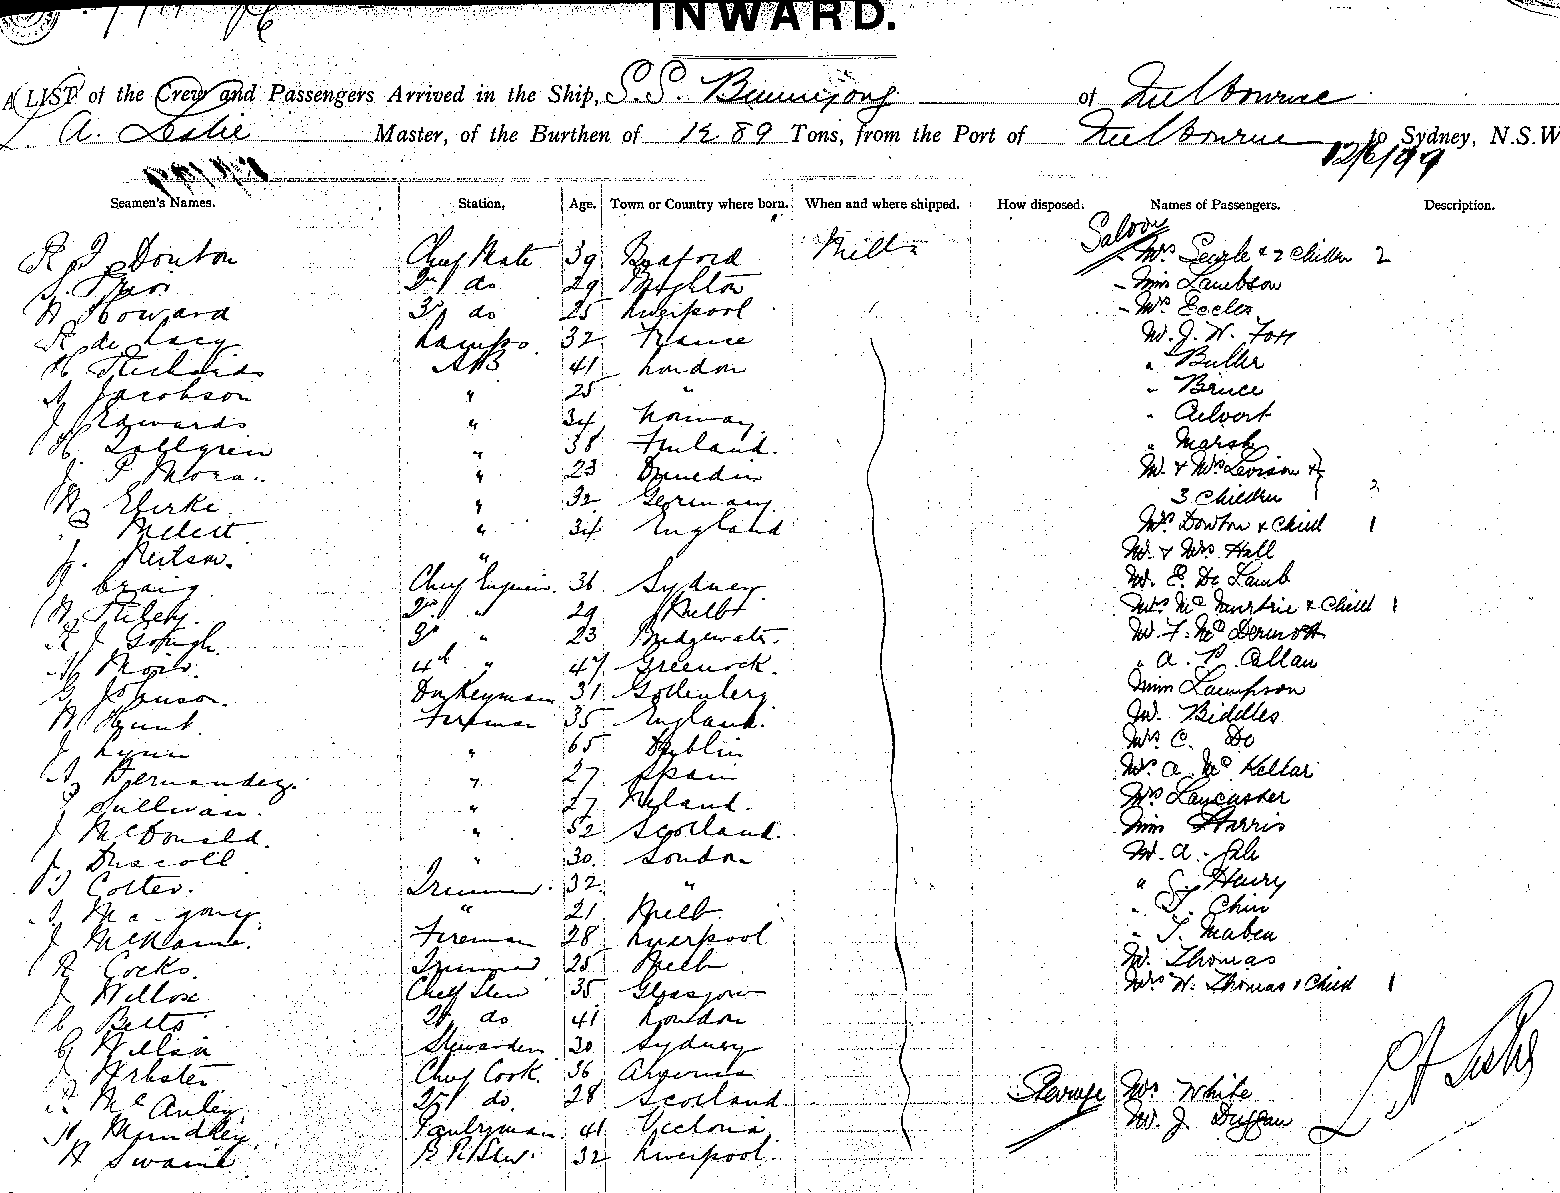 INWARD.
A LIST of the Crew and Passengers Arrived in the Ship, S.S. Buninyong of Melbourne
A. Leslie Master, of the Burthen of Tons, from the Port of Melbourne to Sydney, N.S.W
12/6/99
Seamen's Names. Station, Age. Town or Country where born. When and where shipped. How disposed. Names of Passengers. Description.
Saloon
Chief Mate 39 Melb Mrs Searle & 2 Childn 2
2nd do 29 Brighton Miss Lambson
W Howard 3rd do 25 Liverpool Eccles
R de Lacy Lamps. 32 France Mr. J. W. Forr
H Richards AB 41 London " Buller
A Jacobson " 25 " " Bruce
J Edwards " 34 Norway " Calvert
" 38 Finland. " Marsh
J. P " 23 Dunedin Mr. & Mrs Levison &
W " 32 Germany. 3 Children
" 34 England Mrs Dowton & Child 1
J. Neilson. " Mr. & Mrs Hall
J Craig Chief Engineer. 36 Sydney. Mr. E. De Lamb
W Riley. 2nd " 29 Melb Mrs McMurtrie & Child 1
R J Gough. 3rd " 23 Bridgewater. Mr. F. McDermott
4th " 47 Greenock. " A. P. Allan
G Johnson. Donkeyman 31 Gothenberg Miss Lampson
W Hunt. Fireman 35 England. Biddles
J Lynn " 65 Dublin Mrs C. Do
A Hernandez. " 27 Spain A. McKellar
J Sullivan. " 27 Ireland. Mrs Lancaster
J McDonald. " 52 Scotland. Miss Harris
J. Driscoll " 30. London Mr. A.
Cotter. Trimmer. 32 " " Henry
" 21 Melb. " Chin
J Fireman 28 Liverpool " T. Maben
R Cocks. Trimmer 25 Melb Mr. Thomas
J Willox Chief Stew 35 Glasgow Mrs W. Thomas & Child 1
C Betts 2nd do 41 London
G Wilson Stewardess 30 Sydney
J Webster Chief Cook. 36
R. McAuley 2nd do. 28 Scotland. Steerage White
W Mundkey Pantryman 41 Victoria Mr. J. Duggan
H Swaine 32 Liverpool.